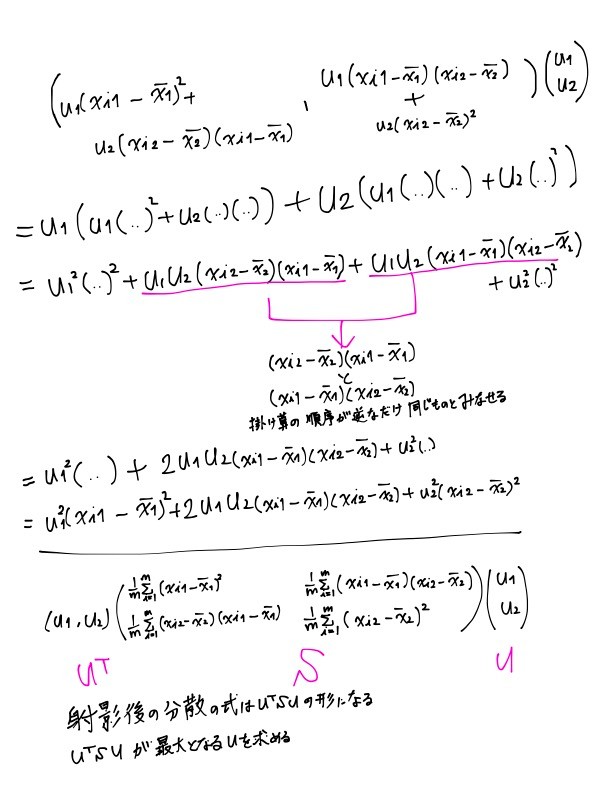 (u₁(xi1 − x̄₁)² + u₂(xi2 − x̄₂)(xi1 − x̄₁) , u₁(xi1 − x̄₁)(xi2 − x̄₂) + u₂(xi2 − x̄₂)²) (u₁ u₂)
= u₁(u₁(..)² + u₂(..)(..)) + u₂(u₁(..)(..) + u₂(..)²)
= u₁²(..)² + u₁u₂(xi2 − x̄₂)(xi1 − x̄₁) + u₁u₂(xi1 − x̄₁)(xi2 − x̄₂)
+ u₂²(..)²
(xi2 − x̄₂)(xi1 − x̄₁)
と
(xi1 − x̄₁)(xi2 − x̄₂)
掛け算の順序が逆なだけ 同じものとみなせる
= u₁²(..) + 2u₁u₂(xi1 − x̄₁)(xi2 − x̄₂) + u₂²(..)
= u₁²(xi1 − x̄₁)² + 2u₁u₂(xi1 − x̄₁)(xi2 − x̄₂) + u₂²(xi2 − x̄₂)²
(u₁, u₂) (1/m Σ_{i=1}^{m} (xi1 − x̄₁)² 1/m Σ_{i=1}^{m} (xi1 − x̄₁)(xi2 − x̄₂) (u₁
1/m Σ_{i=1}^{m} (xi2 − x̄₂)(xi1 − x̄₁) 1/m Σ_{i=1}^{m} (xi2 − x̄₂)²) u₂)
uᵀ S u
射影後の分散の式はuᵀSuの形になる
uᵀSu が最大となるuを求める